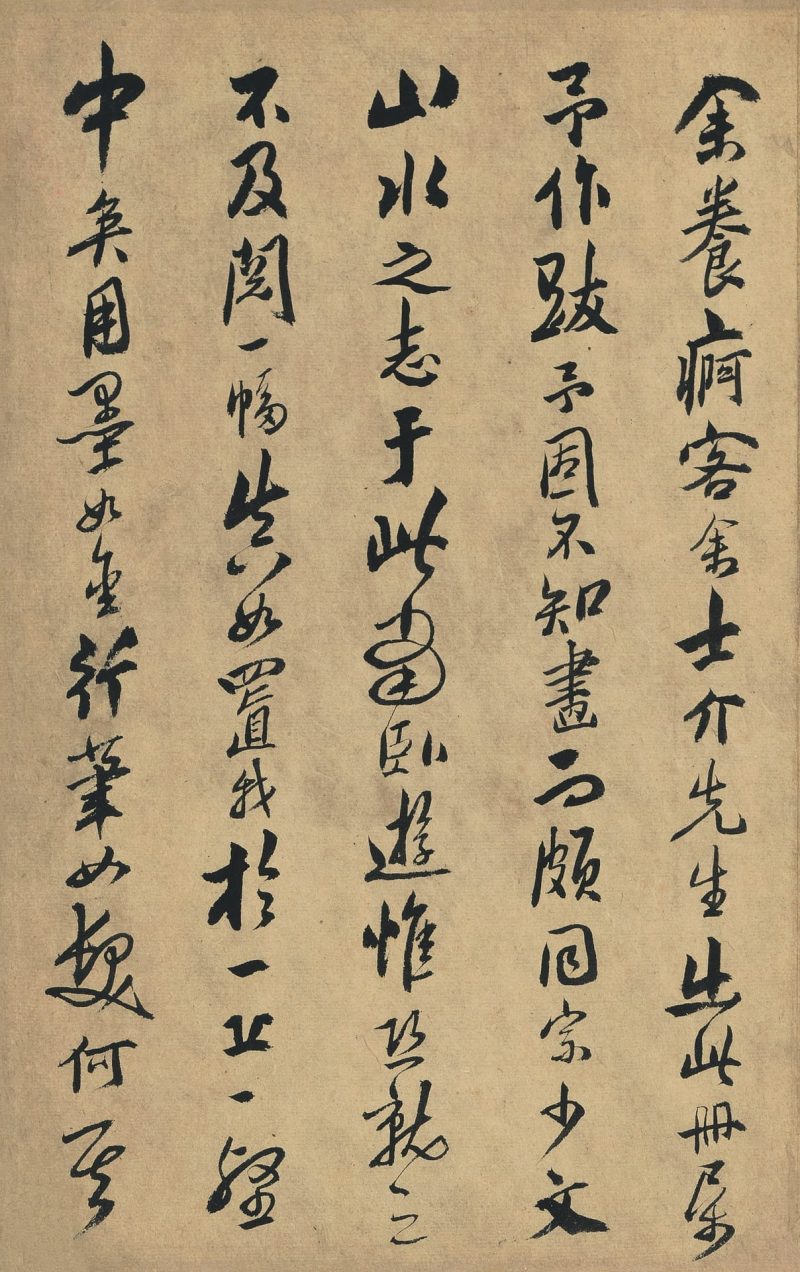 余養痾客舍士介先生出此冊屬
予作跋予固不知畫而頗同宗少文
山水之志于此當臥遊惟恐就之
不及閱一幅失六如置我於一丘一壑
中矣用墨如金行筆如幾何其